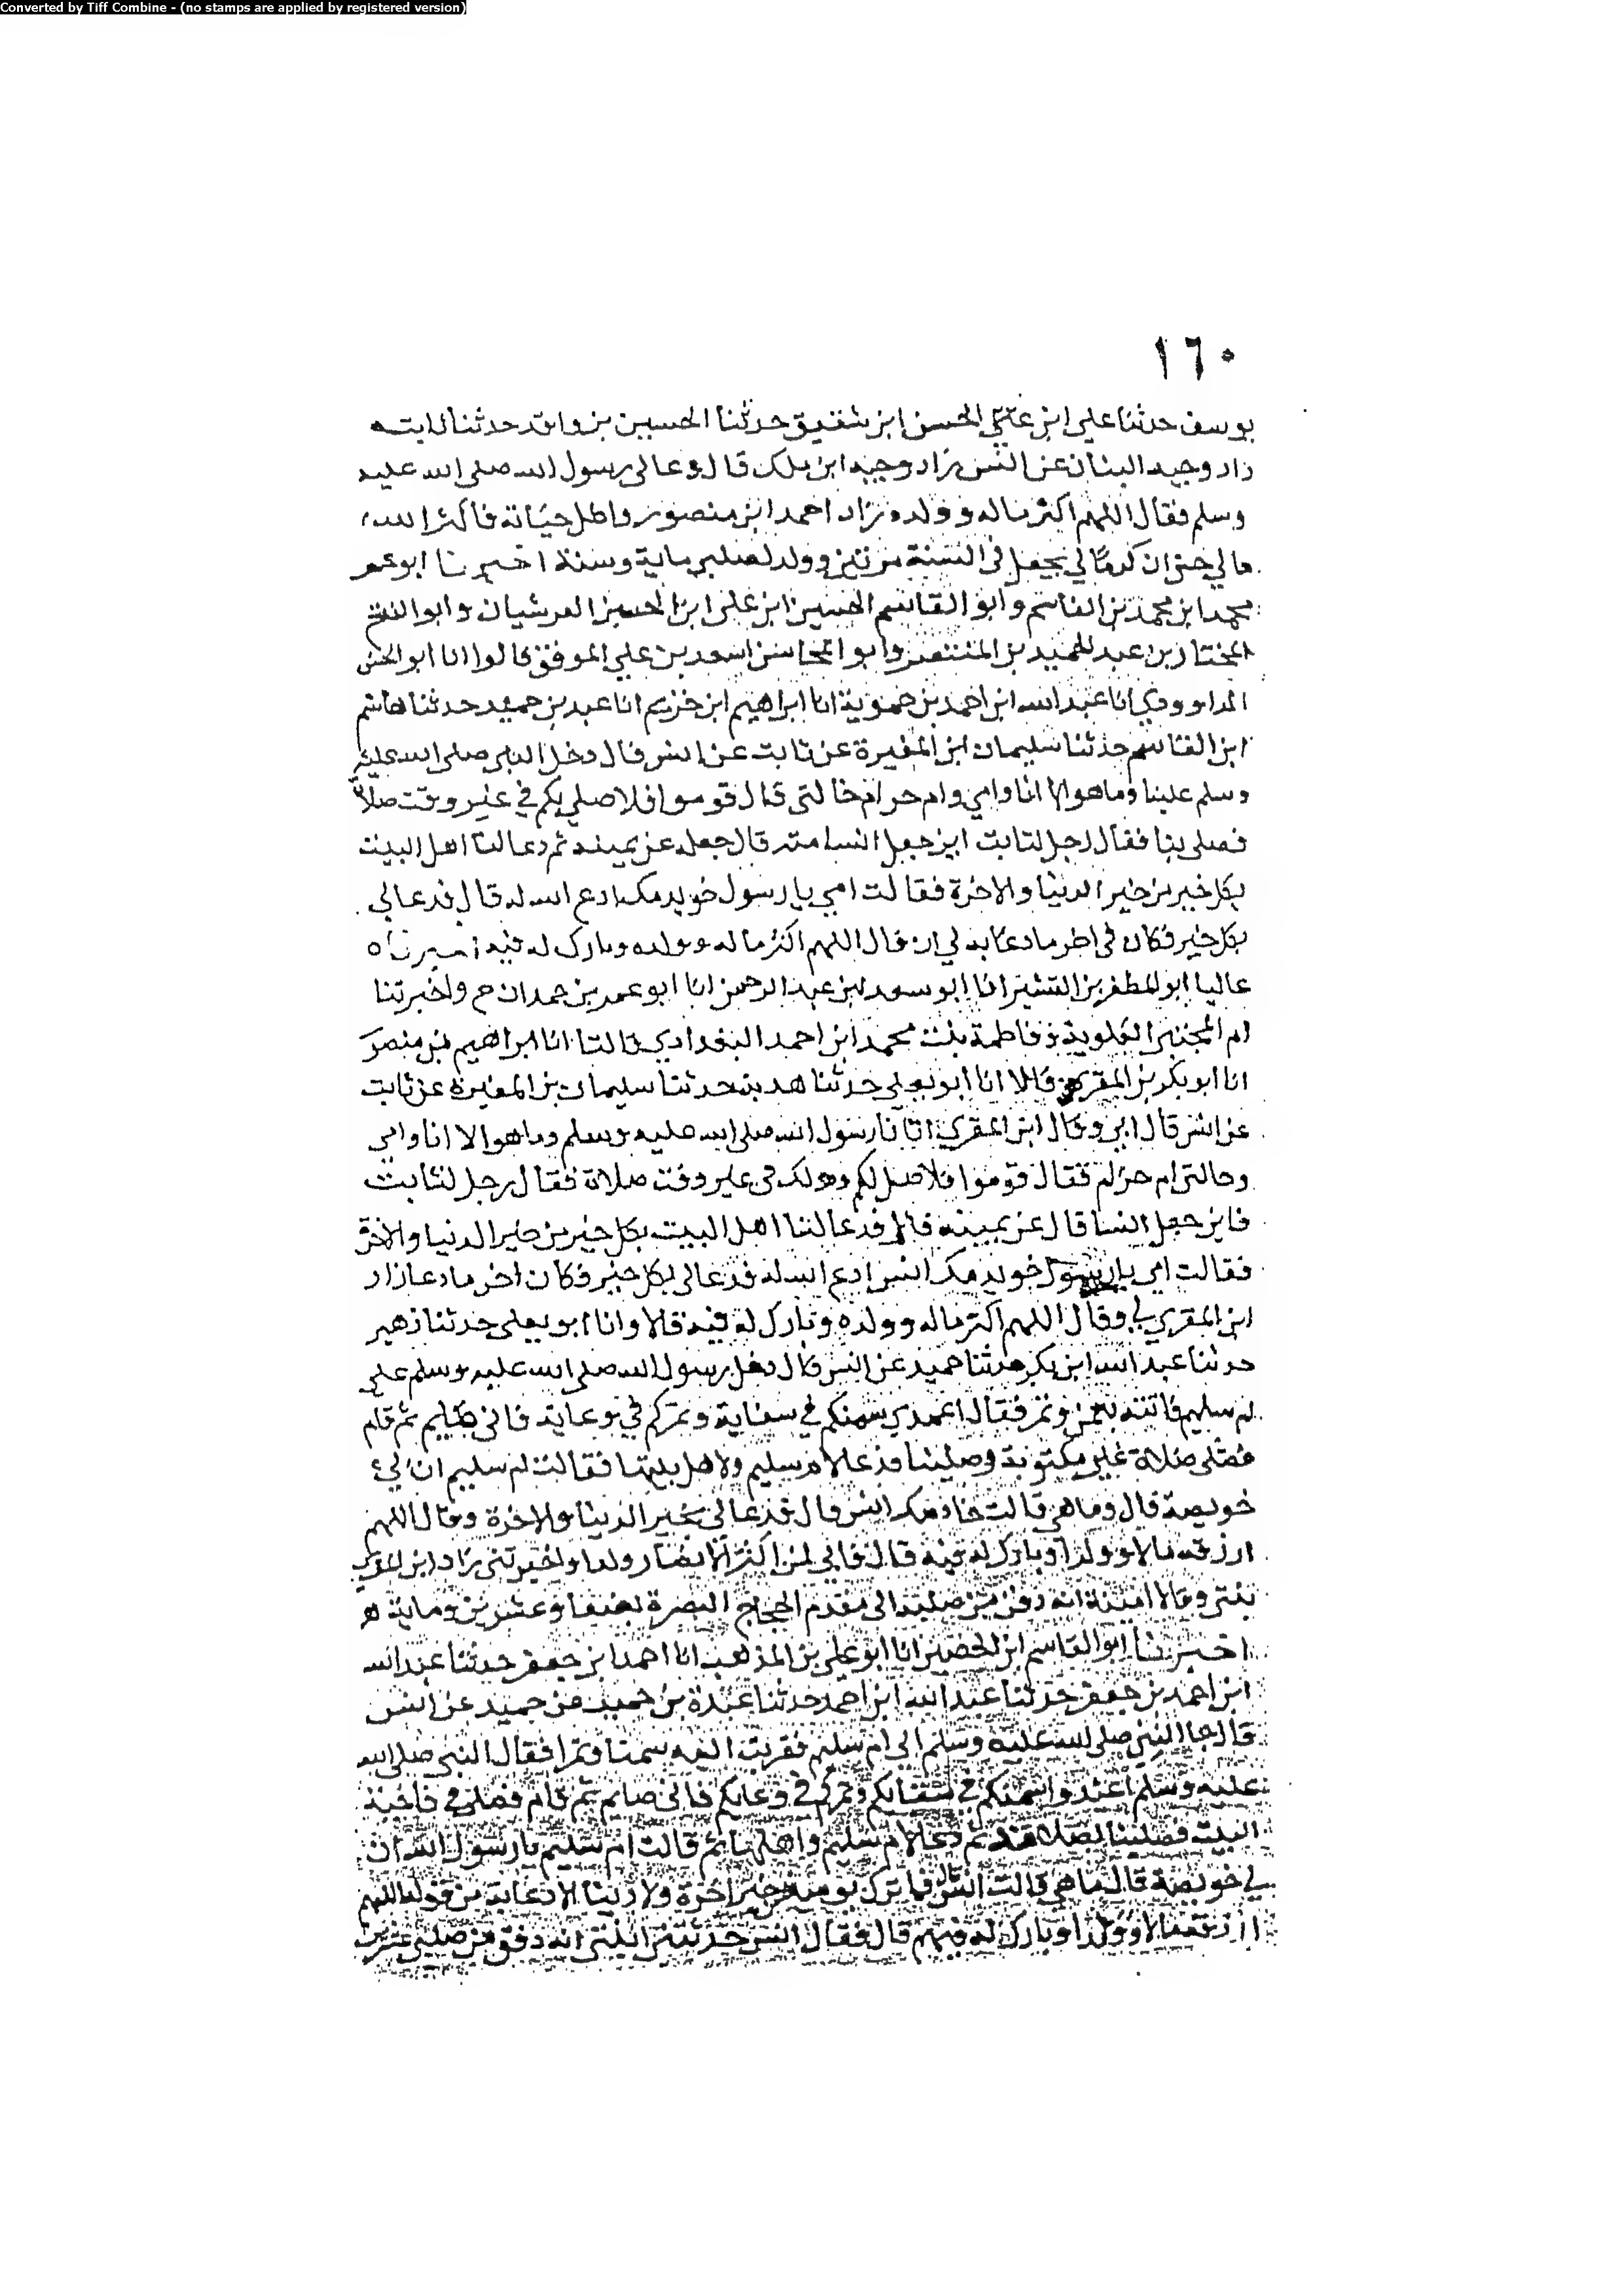 Converted by Tiff Combine - (no stamps are applied by registered version)
١٦٠
يوسف حدثنا علي ابن الحسن ابن شقيق حدثنا الحسين بن واقد حدثنا ثابت
زاد وجيه البنان عن انس زاد وجيه ابن ملك قال دعا لي رسول الله صلى الله عليه
وسلم فقال اللهم اكثر ماله وولده زاد احمد ابن منصور واطل حياته فاكثر الله
مالي حتى ان كرمًا لي يحمل في السنة مرتين وولد لصلبي ماية وستة اخبرنا ابو عمر
محمد ابن محمد بن القاسم وابو القاسم الحسين ابن علي ابن الحسين القرشيان وابو الفتح
المختار بن عبد الحميد بن المنتصر وابو المحاسن اسعد بن علي الموفق قالوا انا ابو الحسن
الداوودي انا عبد الله ابن احمد بن حموية انا ابراهيم ابن خزيم انا عبد بن حميد حدثنا هاشم
ابن القاسم حدثنا سليمان ابن المغيرة عن ثابت عن انس قال دخل النبي صلى الله عليه
وسلم علينا وما هو الا انا وامي وام حرام خالتي قال قوموا فلاصلي بكم في غير وقت صلاة
فصلى بنا فقال رجل لثابت اين جعل انسا منه قال جعله عن يمينه ثم دعا لنا اهل البيت
بكل خير من خير الدنيا والاخرة فقالت امي يا رسول خويدمك ادع الله له قال فدعا لي
بكل خير فكان في اخر ما دعا به لي ان قال اللهم اكثر ماله وولده وبارك له فيه اخبرناه
عاليا ابو المظفر بن القشيري انا ابو سعد بن عبد الرحمن انا ابو عمر بن حمدان ح واخبرتنا
ام المجتبى العلوية وفاطمة بنت محمد ابن احمد البغدادي قالتا انا ابراهيم بن منصور
انا ابو بكر بن المقرى قالا انا ابو يعلى حدثنا هدبة حدثنا سليمان بن المغيرة عن ثابت
عن انس قال ابي وقال ابن المقري اتانا رسول الله صلى الله عليه وسلم وما هو الا انا وامي
وخالتي ام حرام فقال قوموا فلاصل لكم وذلك في غير وقت صلاة فقال رجل لثابت
فاين جعل انسا قال عن يمينه قال فدعا لنا اهل البيت بكل خير من خير الدنيا والاخرة
فقالت امي يا رسول خويدمك انس ادع الله له فدعا لي بكل خير فكان اخر ما دعا زاد
ابن المقري لي وقال اللهم اكثر ماله وولده وبارك له فيه قالا وانا ابو يعلى حدثنا زهير
حدثنا عبد الله ابن بكر حدثنا حميد عن انس قال دخل رسول الله صلى الله عليه وسلم على
ام سليم فاتته بتمر وسمن فقال اعيدي سمنكم في سقايه وتمركم في وعايه فاني صايم ثم قام
فصلى صلاة غير مكتوبة وصلينا فدعا لام سليم ولاهل بيتها فقالت ام سليم ان لي
خويصة قال وما هي قالت خادمك انس قال فدعا لي بخير الدنيا والاخرة وقال اللهم
ارزقه مالا وولدا وبارك له فيه قال فاني لمن اكثر الانصار ولدا واخبرتني زاد ابن المقري
بنتي وقالا امينة انه دفن من صلبه الى مقدم الحجاج البصرة بضعا وعشرين وماية
اخبرنا ابو القاسم ابن الحصين انا ابو علي بن المذهب انا احمد ابن جعفر حدثنا عبد الله
ابن احمد بن جعفر حدثنا عبد الله ابن احمد حدثنا عبيدة بن حميد عن حميد عن انس
قال جا النبي صلى الله عليه وسلم الى ام سليم فقربت اليه سمنا وتمرا فقال النبي صلى الله
عليه وسلم اعيدوا سمنكم في سقايكم وتمركم في وعايكم فاني صايم ثم قام فصلى في ناحية
البيت فصلينا بصلاته ثم دعا لام سليم واهلها ثم قالت ام سليم يا رسول الله ان
لي خويصة قال ما هي قالت انس فما ترك يومئذ خير اخرة ولا دنيا الا دعا به من قوله اللهم
ارزقه مالا وولدا وبارك له فيهم قال فقال انس حدثتني ابنتي انه دفن من صلبي عشرين